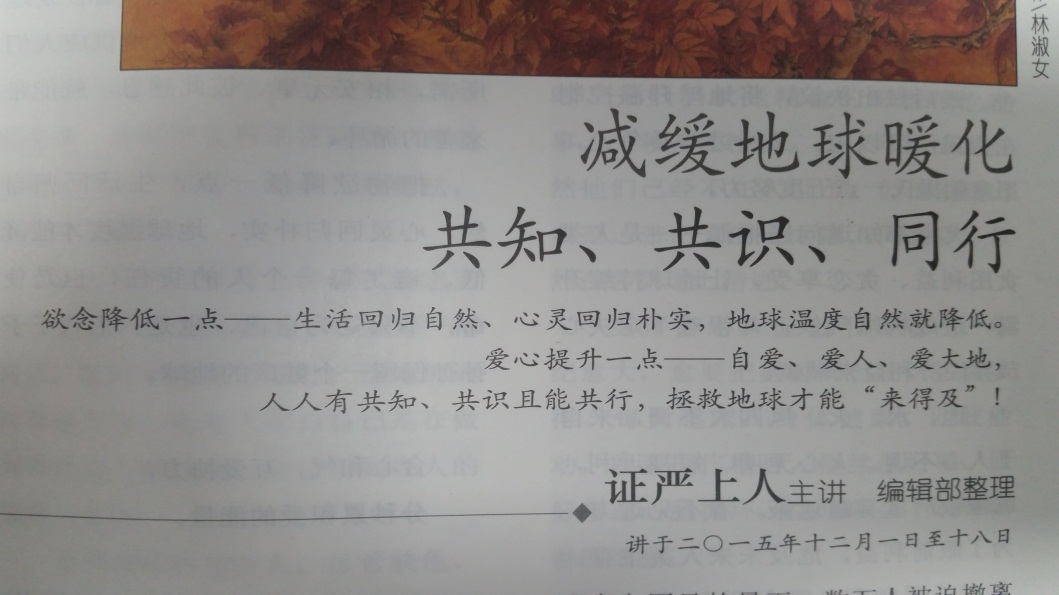 ／林淑女
减缓地球暖化
共知、共识、同行
欲念降低一点——生活回归自然、心灵回归朴实，地球温度自然就降低。
爱心提升一点——自爱、爱人、爱大地，
人人有共知、共识且能共行，拯救地球才能“来得及”！
证严上人主讲 编辑部整理
讲于二〇一五年十二月一日至十八日
数万人被迫撤离